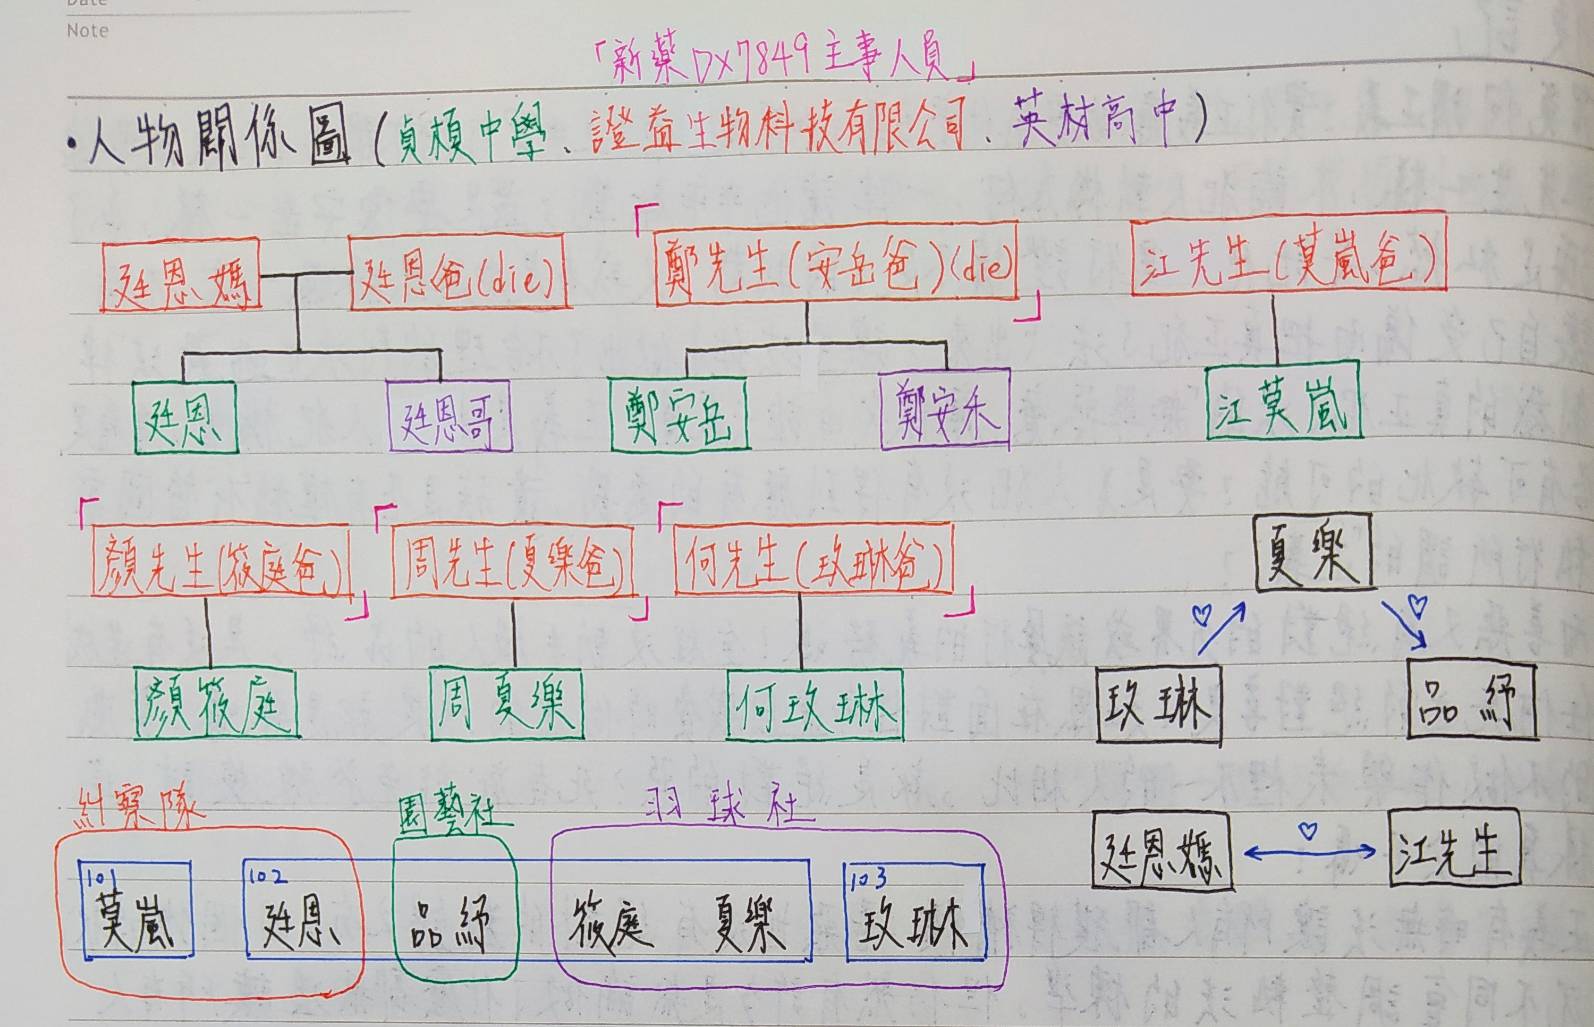 Date
Note
「新藥DX7849主事人員」
·人物關係圖(貞楨中學、證益生物科技有限公司、英材高中)
廷恩媽 廷恩爸(die) 鄭先生(安岳爸)(die) 江先生(莫嵐爸)
廷恩 廷恩哥 鄭安岳 鄭安禾 江莫嵐
顏先生(筱庭爸) 周先生(夏樂爸) 何先生(玫琳爸)
夏樂
♡ ♡
顏筱庭 周夏樂 何玫琳 玫琳 品紓
糾察隊 園藝社 羽球社
廷恩媽 ♡ 江先生
101 102 103
莫嵐 廷恩 品紓 筱庭 夏樂 玫琳